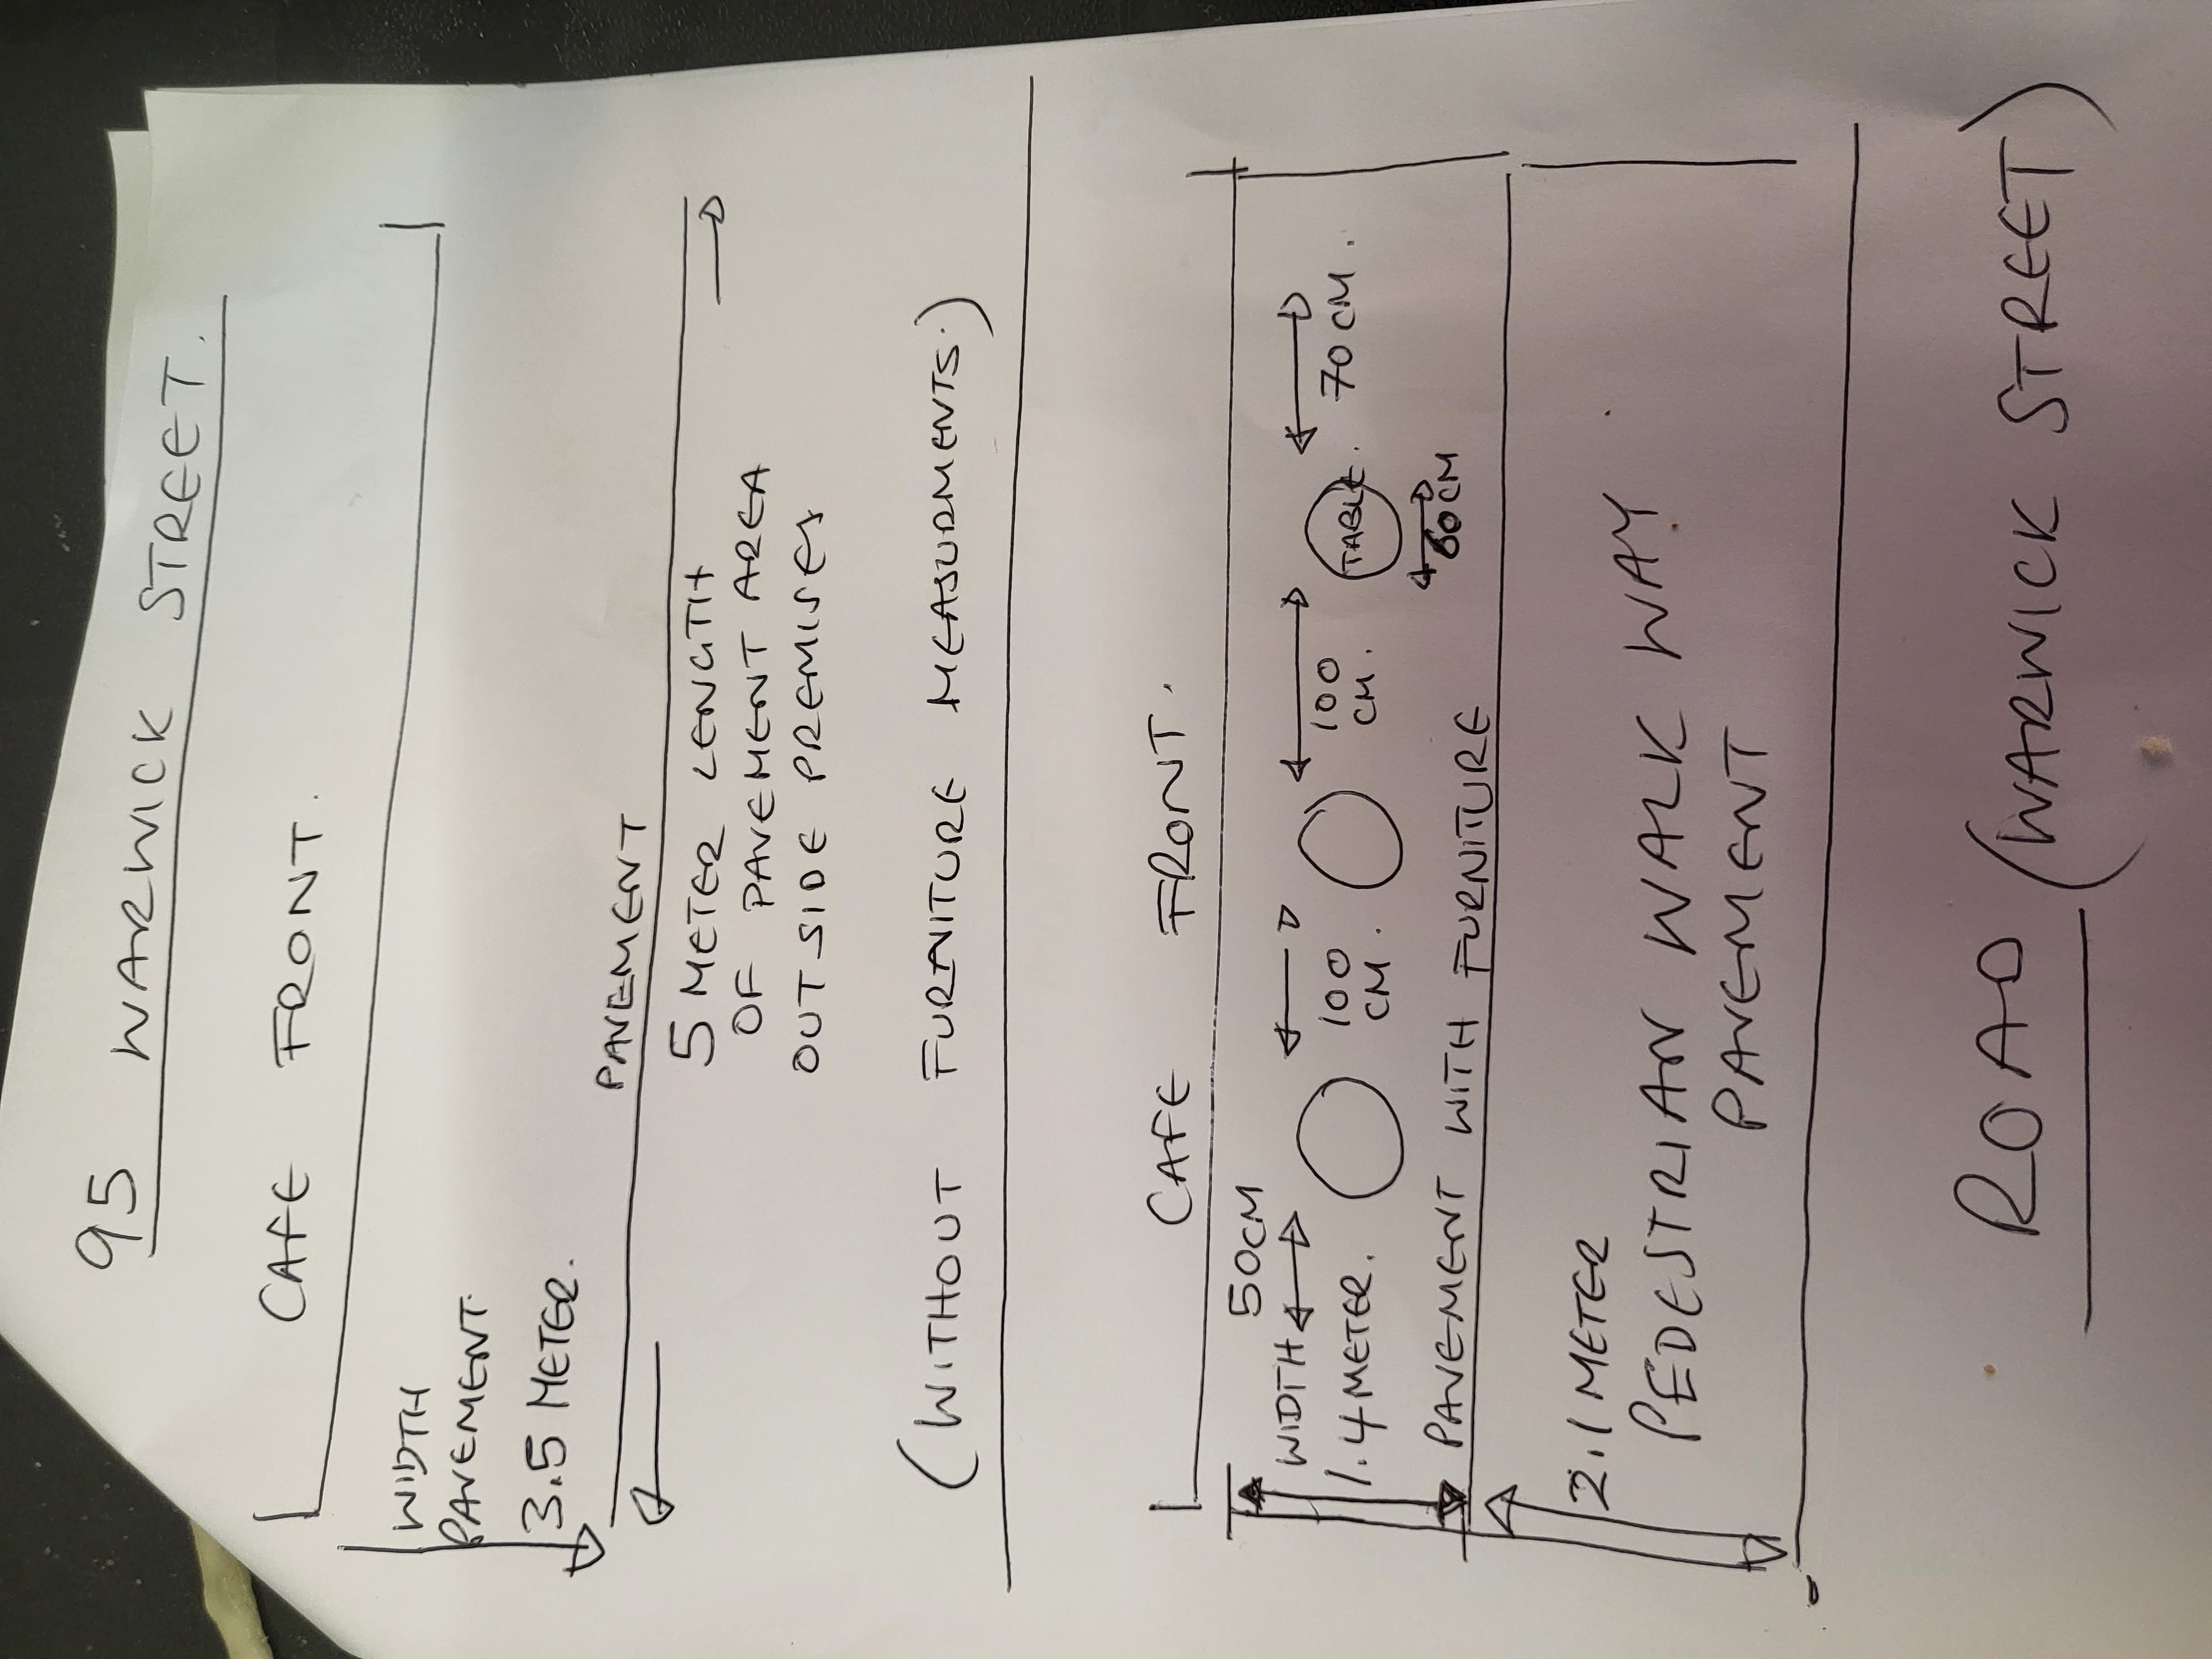 95 WARWICK STREET.
CAFE FRONT.
WIDTH
PAVEMENT.
3.5 METER.
PAVEMENT
5 METER LENGTH
OF PAVEMENT AREA
OUT SIDE PREMISES
(WITHOUT FURNITURE MEASURMENTS.)
CAFE FRONT.
50CM
WIDTH
1.4 METER.
100
CM.
100
CM.
TABLE.
70 CM.
60 CM
PAVEMENT WITH FURNITURE
2.1 METER
PEDESTRIAN WALK WAY
PAVEMENT
ROAD (WARWICK STREET)